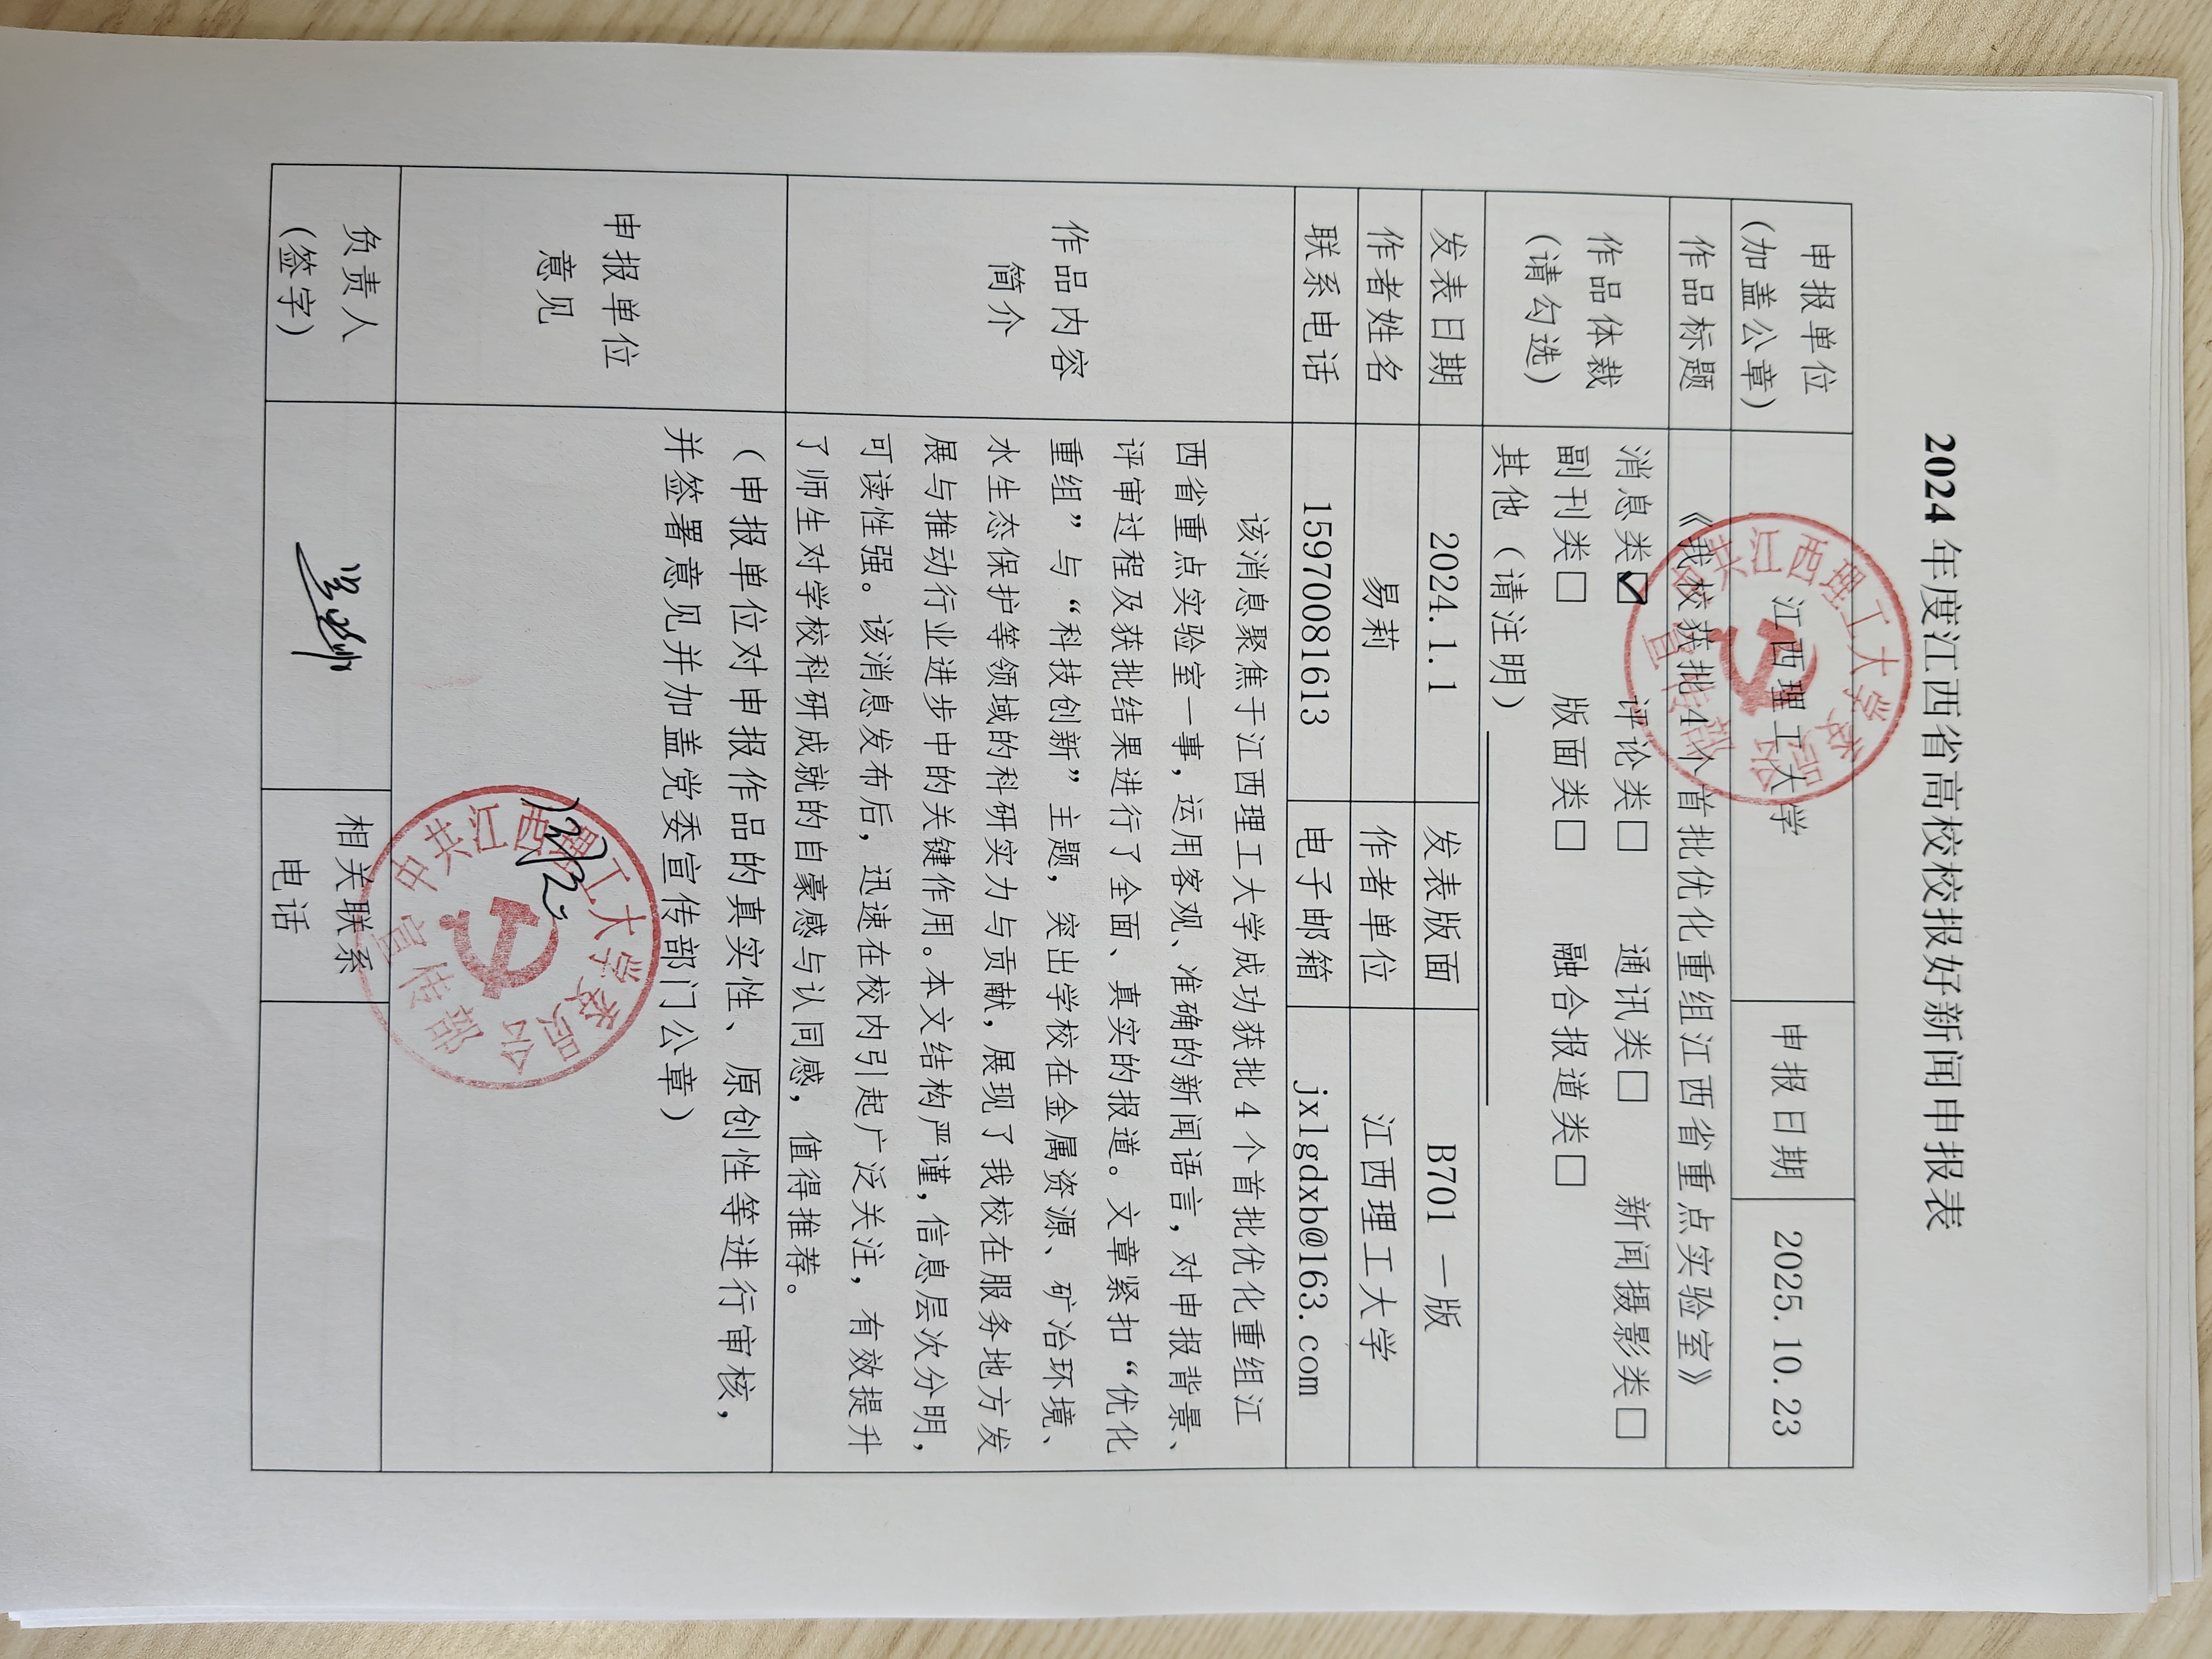 2024 年度江西省高校校报好新闻申报表
申报单位
(加盖公章)
江西理工大学
申报日期
2025.10.23
中共江西理工大学委员会
宣传部
作品标题
《我校获批4个首批优化重组江西省重点实验室》
作品体裁
(请勾选)
消息类☑ 评论类□ 通讯类□ 新闻摄影类□
副刊类□ 版面类□ 融合报道类□
其他（请注明）
发表日期
2024.1.1
发表版面
B701 一版
作者姓名
易莉
作者单位
江西理工大学
联系电话
15970081613
电子邮箱
jxlgdxb@163.com
作品内容
简介
该消息聚焦于江西理工大学成功获批 4 个首批优化重组江
西省重点实验室一事，运用客观、准确的新闻语言，对申报背景、
评审过程及获批结果进行了全面、真实的报道。文章紧扣“优化
重组”与“科技创新”主题，突出学校在金属资源、矿冶环境、
水生态保护等领域的科研实力与贡献，展现了我校在服务地方发
展与推动行业进步中的关键作用。本文结构严谨，信息层次分明，
可读性强。该消息发布后，迅速在校内引起广泛关注，有效提升
了师生对学校科研成就的自豪感与认同感，值得推荐。
申报单位
意见
（申报单位对申报作品的真实性、原创性等进行审核，
并签署意见并加盖党委宣传部门公章）
中共江西理工大学委员会
宣传部
负责人
(签字)
相关联系
电话